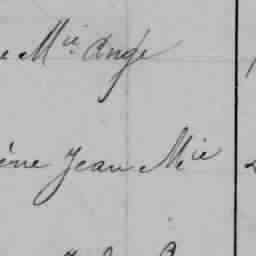 e Mie Ange
ène Jean Mie